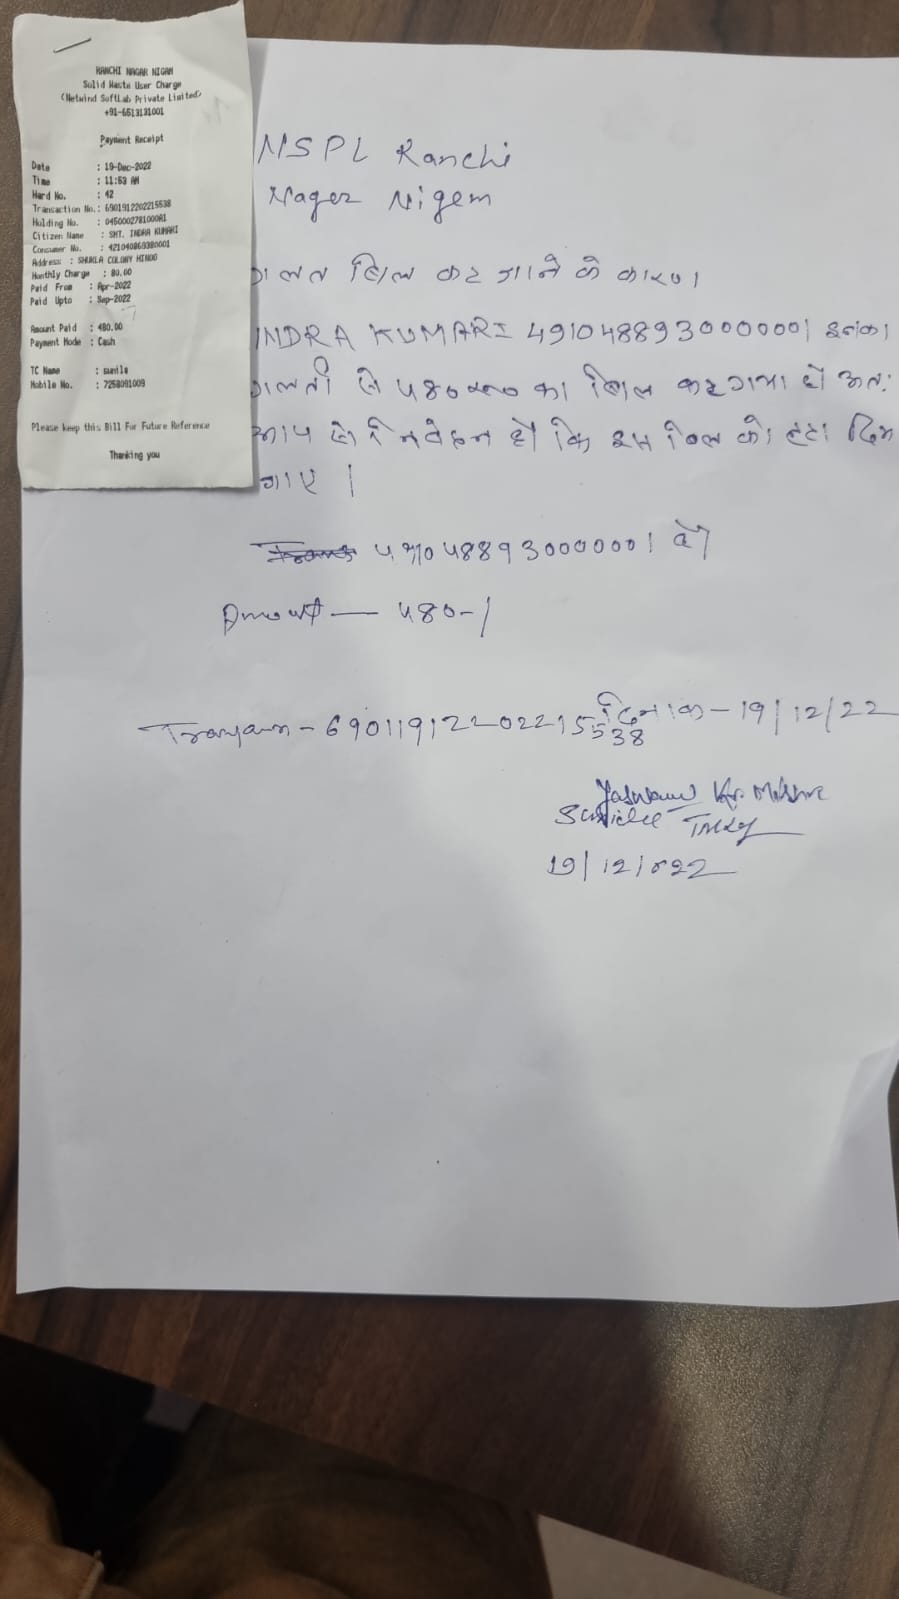 RANCHI NAGAR NIGAM
Solid Waste User Charge
(Netwind SoftLab Private Limited)
+91-6513131001
Payment Receipt
Date : 19-Dec-2022
Time : 11:53 AM
Ward No. : 42
Transaction No.: 6901912202215538
Holding No. : 0450002781000A1
Citizen Name : SMT. INDRA KUMARI
Consumer No. : 421040869380001
Address: : SHUKLA COLONY HINOO
Monthly Charge : 80.00
Paid From : Apr-2022
Paid Upto : Sep-2022
Amount Paid : 480.00
Payment Mode : Cash
TC Name : sunila
Mobile No. : 7258091009
Please keep this Bill For Future Reference
Thanking you
NSPL Ranchi
Nager Nigem
गलत बिल कट जाने के कारण।
INDRA KUMARI 4910488930000001 इनका
गलती से ५80 का बिल कट गया है अतः
आप से निवेदन है कि इस बिल को हटा दिया
जाए।
Amount — ५80-/
दिनांक - 19/12/22
690119122022155538
Kr.
19/12/022